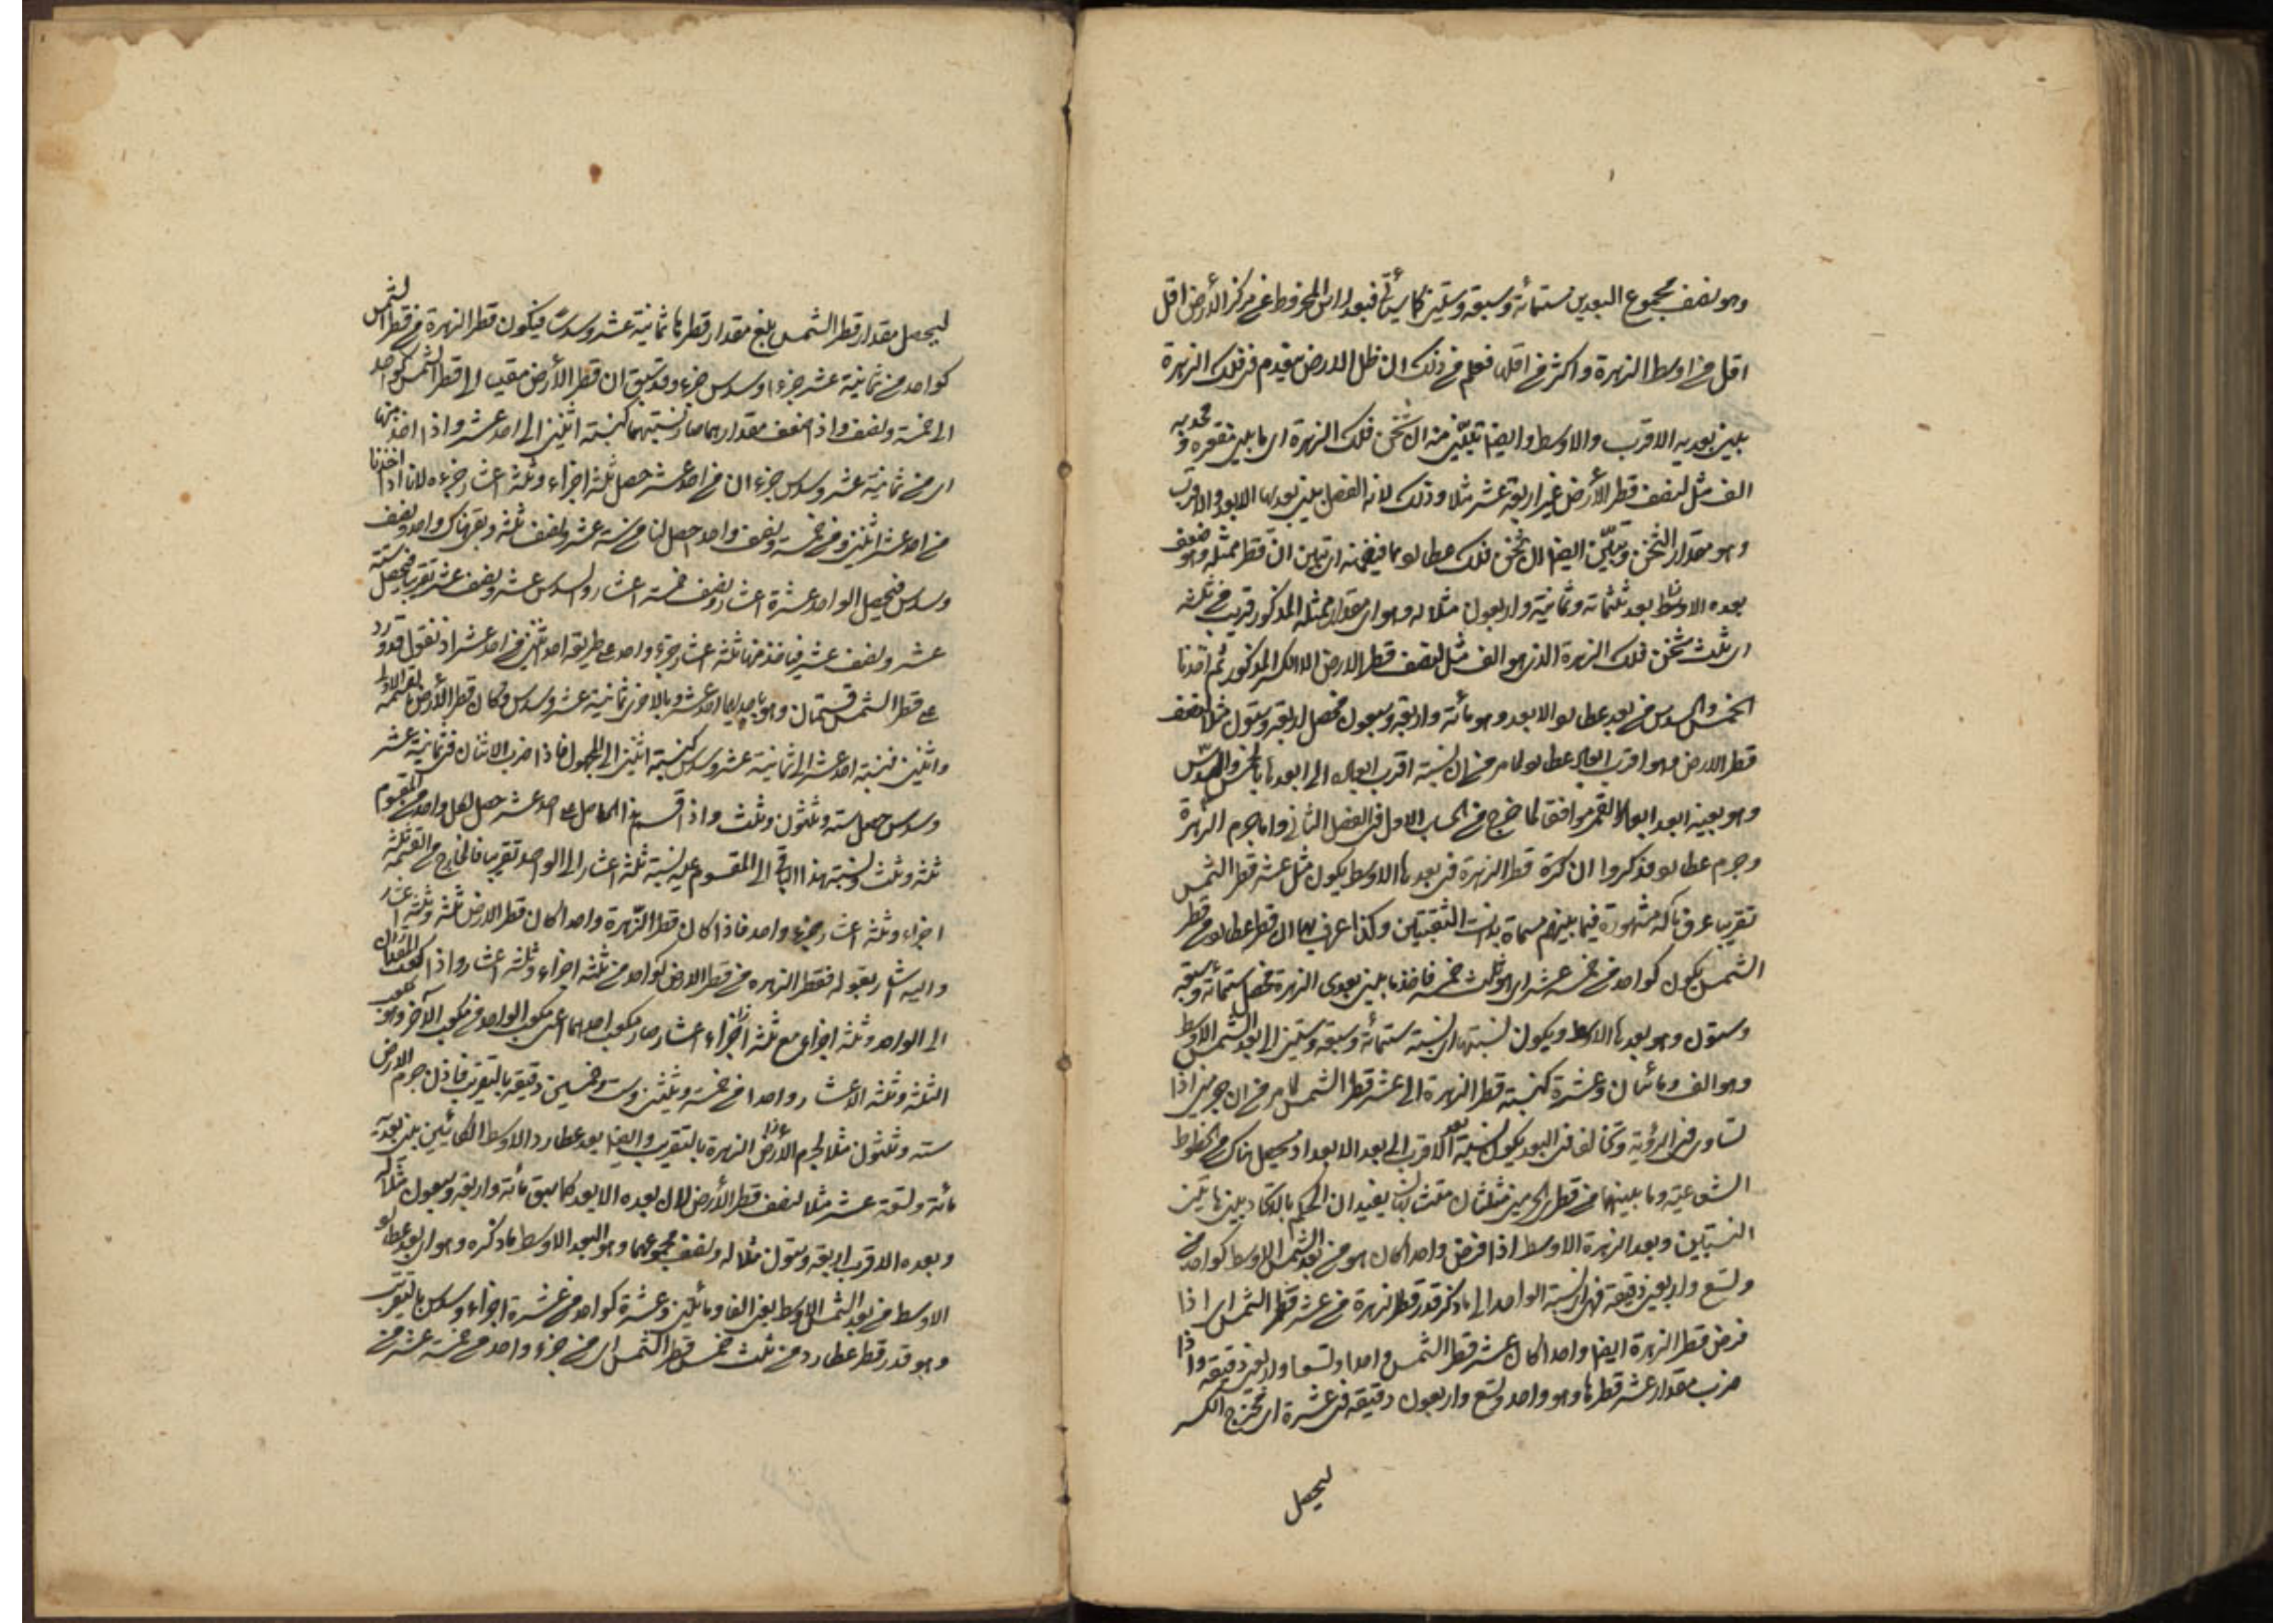 وهو نصف مجموع البعدين ستمائة وسبعة وستين كما سيأتى فبعد راس المخروط عن مركز الأرض اقل
اقل من اوسط الزهرة واكثر من اقلها فعلم من ذلك ان ظل الارض يقدم فى فلك الزهرة
بين بعديه الاقرب والاوسط وايضا تبيّن منه ان ثخن فلك الزهرة اى ما بين مقعره ومحدبه
الف مثل لنصف قطر الأرض غير اربعة عشر مثلا وذلك لانه الفضل بين بعديها الابعد والاقرب
وهو مقدار الثخن وتبيّن ايضا ان ثخن فلك عطارد مما فيضمنه ان تبين ان قطر ممثله وهو ضعف
بعده الاوسط بعد ثلثمائة وثمانية واربعون مثلا له وهو اى مقدار ممثله المذكور قريب من ثلثه
اى ثلث ثخن فلك الزهرة الذى هو الف مثل لنصف قطر الارض الا الكسر المذكور ثم اخذنا
الخمس والسدس من بعد عطارد الابعد وهو مائة واربعة وسبعون فحصل اربعة وستون مثلا لنصف
قطر الارض وهو اقرب ابعاد عطارد لما مر من ان نسبة اقرب ابعاده الى ابعدها بالخمس والسدس
وهو بعينه ابعد ابعاد القمر موافق لما خرج من الحساب الاول فى الفصل الثانى واما جرم الزهرة
وجرم عطارد فذكروا ان كرة قطر الزهرة فى بعدها الاوسط يكون مثل عشر قطر الشمس
تقريبا عرف بآلة مشهورة فيما بينهم مسماة بذات الثقبتين وكذا عرف بها ان قطر عطارد من قطر
الشمس يكون كواحد من خمسة عشر اى هو ثلث خمسه فاخذ ما بين بعدى الزهرة فحصل ستمائة وسبعة
وستون وهو بعدها الاوسط ويكون نسبتها اى نسبة ستمائة وسبعة وستين الى بعد الشمس الاوسط
وهو الف ومائتان وعشرة كنسبة قطر الزهرة الى عشر قطر الشمس لما مر من ان جرمين اذا
تساوى فى الرؤية وتخالف فى البعد يكون نسبة بعد الاقرب الى بعد الابعد اذ يحصل هناك من الخطوط
الشعاعية وما بينهما من قطرى الجرمين مثلثان متشابهان يفيد ان الحكم باتحاد بين هاتين
النسبتين وبعد الزهرة الاوسط اذا فرض واحد كان هو من بعد الشمس الاوسط كواحد من
وتسع واربعين دقيقة فهى اى نسبة الواحد الى ما ذكر قدر قطر الزهرة من عشر قطر الشمس اى اذا
فرض قطر الزهرة ايضا واحد كان عشر قطر الشمس واحدا وتسعا واربعين دقيقة واذا
ضرب مقدار عشر قطرها وهو واحد وتسع واربعون دقيقة فى عشرة اى مخرج الكسر
ليحصل
ليحصل مقدار قطر الشمس بلغ مقدار قطرها ثمانية عشر وسدسا فيكون قطر الزهرة من قطر الشمس
كواحد من ثمانية عشر جزءا وسدس جزء وقد سبق ان قطر الأرض مقيسا الى قطر الشمس كواحد
الى خمسة ونصف واذا ضعف مقدارهما صار نسبتهما كنسبة اثنين الى احد عشر واذا اخذ منها
اى من ثمانية عشر وسدس جزء ان من احد عشر حصل ثلثة اجزاء وثلثة اعشار جزء لانا اذا اخذنا
من احد عشر اثنين ومن خمسة ونصف واحد حصل لنا من ستة عشر ونصف ثلثة وبقى هناك واحد ونصف
وسدس فيحصل الواحد عشرة اعشار ونصف خمسة اعشار والسدس عشر ونصف عشر تقريبا فيحصل ستة
عشر ونصف عشر فيأخذ منها ثلثة اعشار جزء واحد على طريقة اخذ اثنين من احد عشر او نقول قد ورد
على قطر الشمس قسمتان وهو باحديهما احد عشر وبالاخرى ثمانية عشر وسدس وكان قطر الأرض بالقسمة الاولى
واثنين فنسبة احد عشر الى ثمانية عشر وسدس كنسبة اثنين الى المجهول فاذا ضرب الاثنان فى ثمانية عشر
وسدس حصل ستة وثلثون وثلث واذا قسم هذا الحاصل على احد عشر حصل لكل واحد من المقسوم
ثلثة وثلث ونسبة هذا الباقى الى المقسوم عليه نسبة ثلثة اعشار الى الواحد تقريبا فالخارج من القسمة ثلثة
اجزاء وثلثة اعشار جزء واحد فاذا كان قطر الزّهرة واحدا كان قطر الارض ثلثة وثلثة اعشار
واليه اشار بقوله فقطر الزهره من قطر الارض كواحد من ثلثة اجزاء وثلثة اعشار واذا كعب المقداران
الى الواحد وثلثة اجزاء مع ثلثة اجزاء اعشار صار مكعب احدهما اعنى مكعب الواحد من مكعب الآخر وهو مكعب
الثلثة وثلثة الاعشار واحدا من خمسة وثلثين وست وخمسين دقيقة بالتقريب فاذن جرم الارض
ستة وثلثون مثلا لجرم الزهرة بالتقريب وايضا بعد عطارد الاوسط الكائنين بين بعديه
مائة وتسعة عشر مثلا لنصف قطر الأرض لان بعده الابعد كما سبق مائة واربعة وسبعون مثلا له
وبعده الاقرب اربعة وستون مثلا له ونصف مجموعهما وهو البعد الاوسط ما ذكره وهو اى بعد عطارد
الاوسط من بعد الشمس الاوسط يعنى الفا ومائتين وعشرة كواحد من عشرة اجزاء وسدس بالتقريب
وهو قدر قطر عطارد من ثلث خمس قطر الشمس اى من جزء واحد من خمسة عشر من